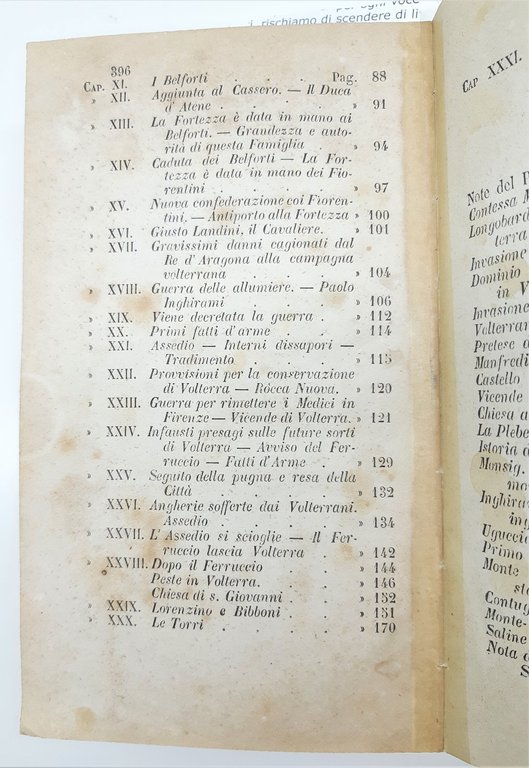 rischiamo di scendere di li
396
CAP. XI. I Belforti . . . Pag. 88
» XII. Aggiunta al Cassero. — Il Duca
d' Atene . . . . » 91
» XIII. La Fortezza è data in mano ai
Belforti. — Grandezza e auto-
rità di questa Famiglia . . » 94
» XIV. Caduta dei Belforti — La For-
tezza è data in mano dei Fio-
rentini . . . . » 97
» XV. Nuova confederazione coi Fioren-
tini. — Antiporto alla Fortezza » 100
» XVI. Giusto Landini, il Cavaliere. » 101
» XVII. Gravissimi danni cagionati dal
Re d'Aragona alla campagna
volterrana . . . . » 104
» XVIII. Guerra delle allumiere. — Paolo
Inghirami . . . . » 106
» XIX. Viene decretata la guerra . » 112
» XX. Primi fatti d'arme . . » 114
» XXI. Assedio — Interni dissapori —
Tradimento . . . . » 115
» XXII. Provvisioni per la conservazione
di Volterra — Rocca Nuova. » 120
» XXIII. Guerra per rimettere i Medici in
Firenze — Vicende di Volterra. » 121
» XXIV. Infausti presagi sulle future sorti
di Volterra — Avviso del Fer-
ruccio — Fatti d'Arme . . » 129
» XXV. Seguito della pugna e resa della
Città . . . . » 132
» XXVI. Angherie sofferte dai Volterrani.
Assedio . . . . » 134
» XXVII. L'Assedio si scioglie — Il Fer-
ruccio lascia Volterra . . » 142
» XXVIII. Dopo il Ferruccio . . » 144
Peste in Volterra. . . » 146
Chiesa di s. Giovanni . . » 152
» XXIX. Lorenzino e Bibboni . . » 151
» XXX. Le Torri . . . . » 170
CAP XXXI.
Note del
Contessa
Longobar
terra
Invasione
Dominio
in V
Invasione
Volterran
Pretese
Manfredi
Castello
Vicende
Chiesa a
La Plebe
Istoria
Monsig.
Inghira
Uguccio
Primo
Monte
Contug
Monte-
Saline
Nota